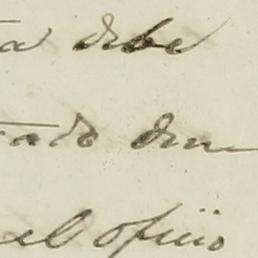 ta debe
tado den
el ofiio